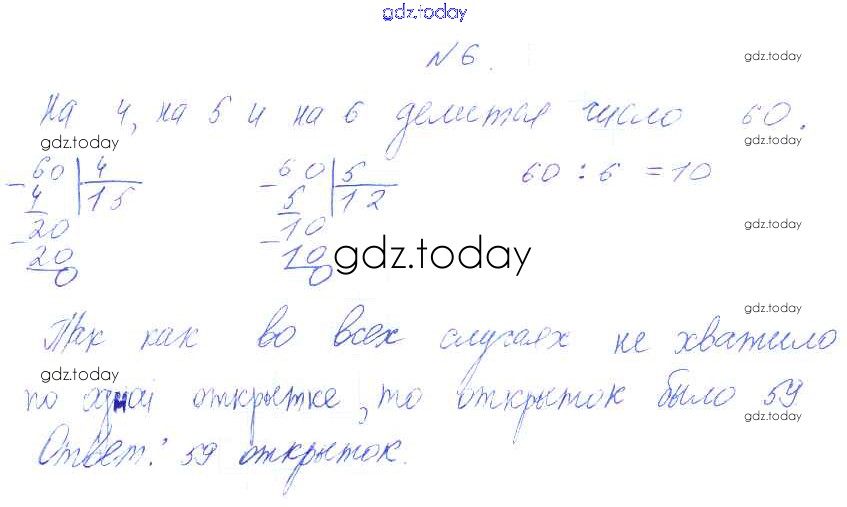 gdz.today
№6. gdz.today
На 4, на 5 и на 6 делится число 60.
gdz.today gdz.today
60 4 60 5 60 : 6 = 10
4 15 5 12
20 10 gdz.today
20 10 gdz.today
0 0
gdz.today
Так как во всех случаях не хватило
gdz.today
по одной открытке, то открыток было 59
gdz.today
Ответ: 59 открыток.